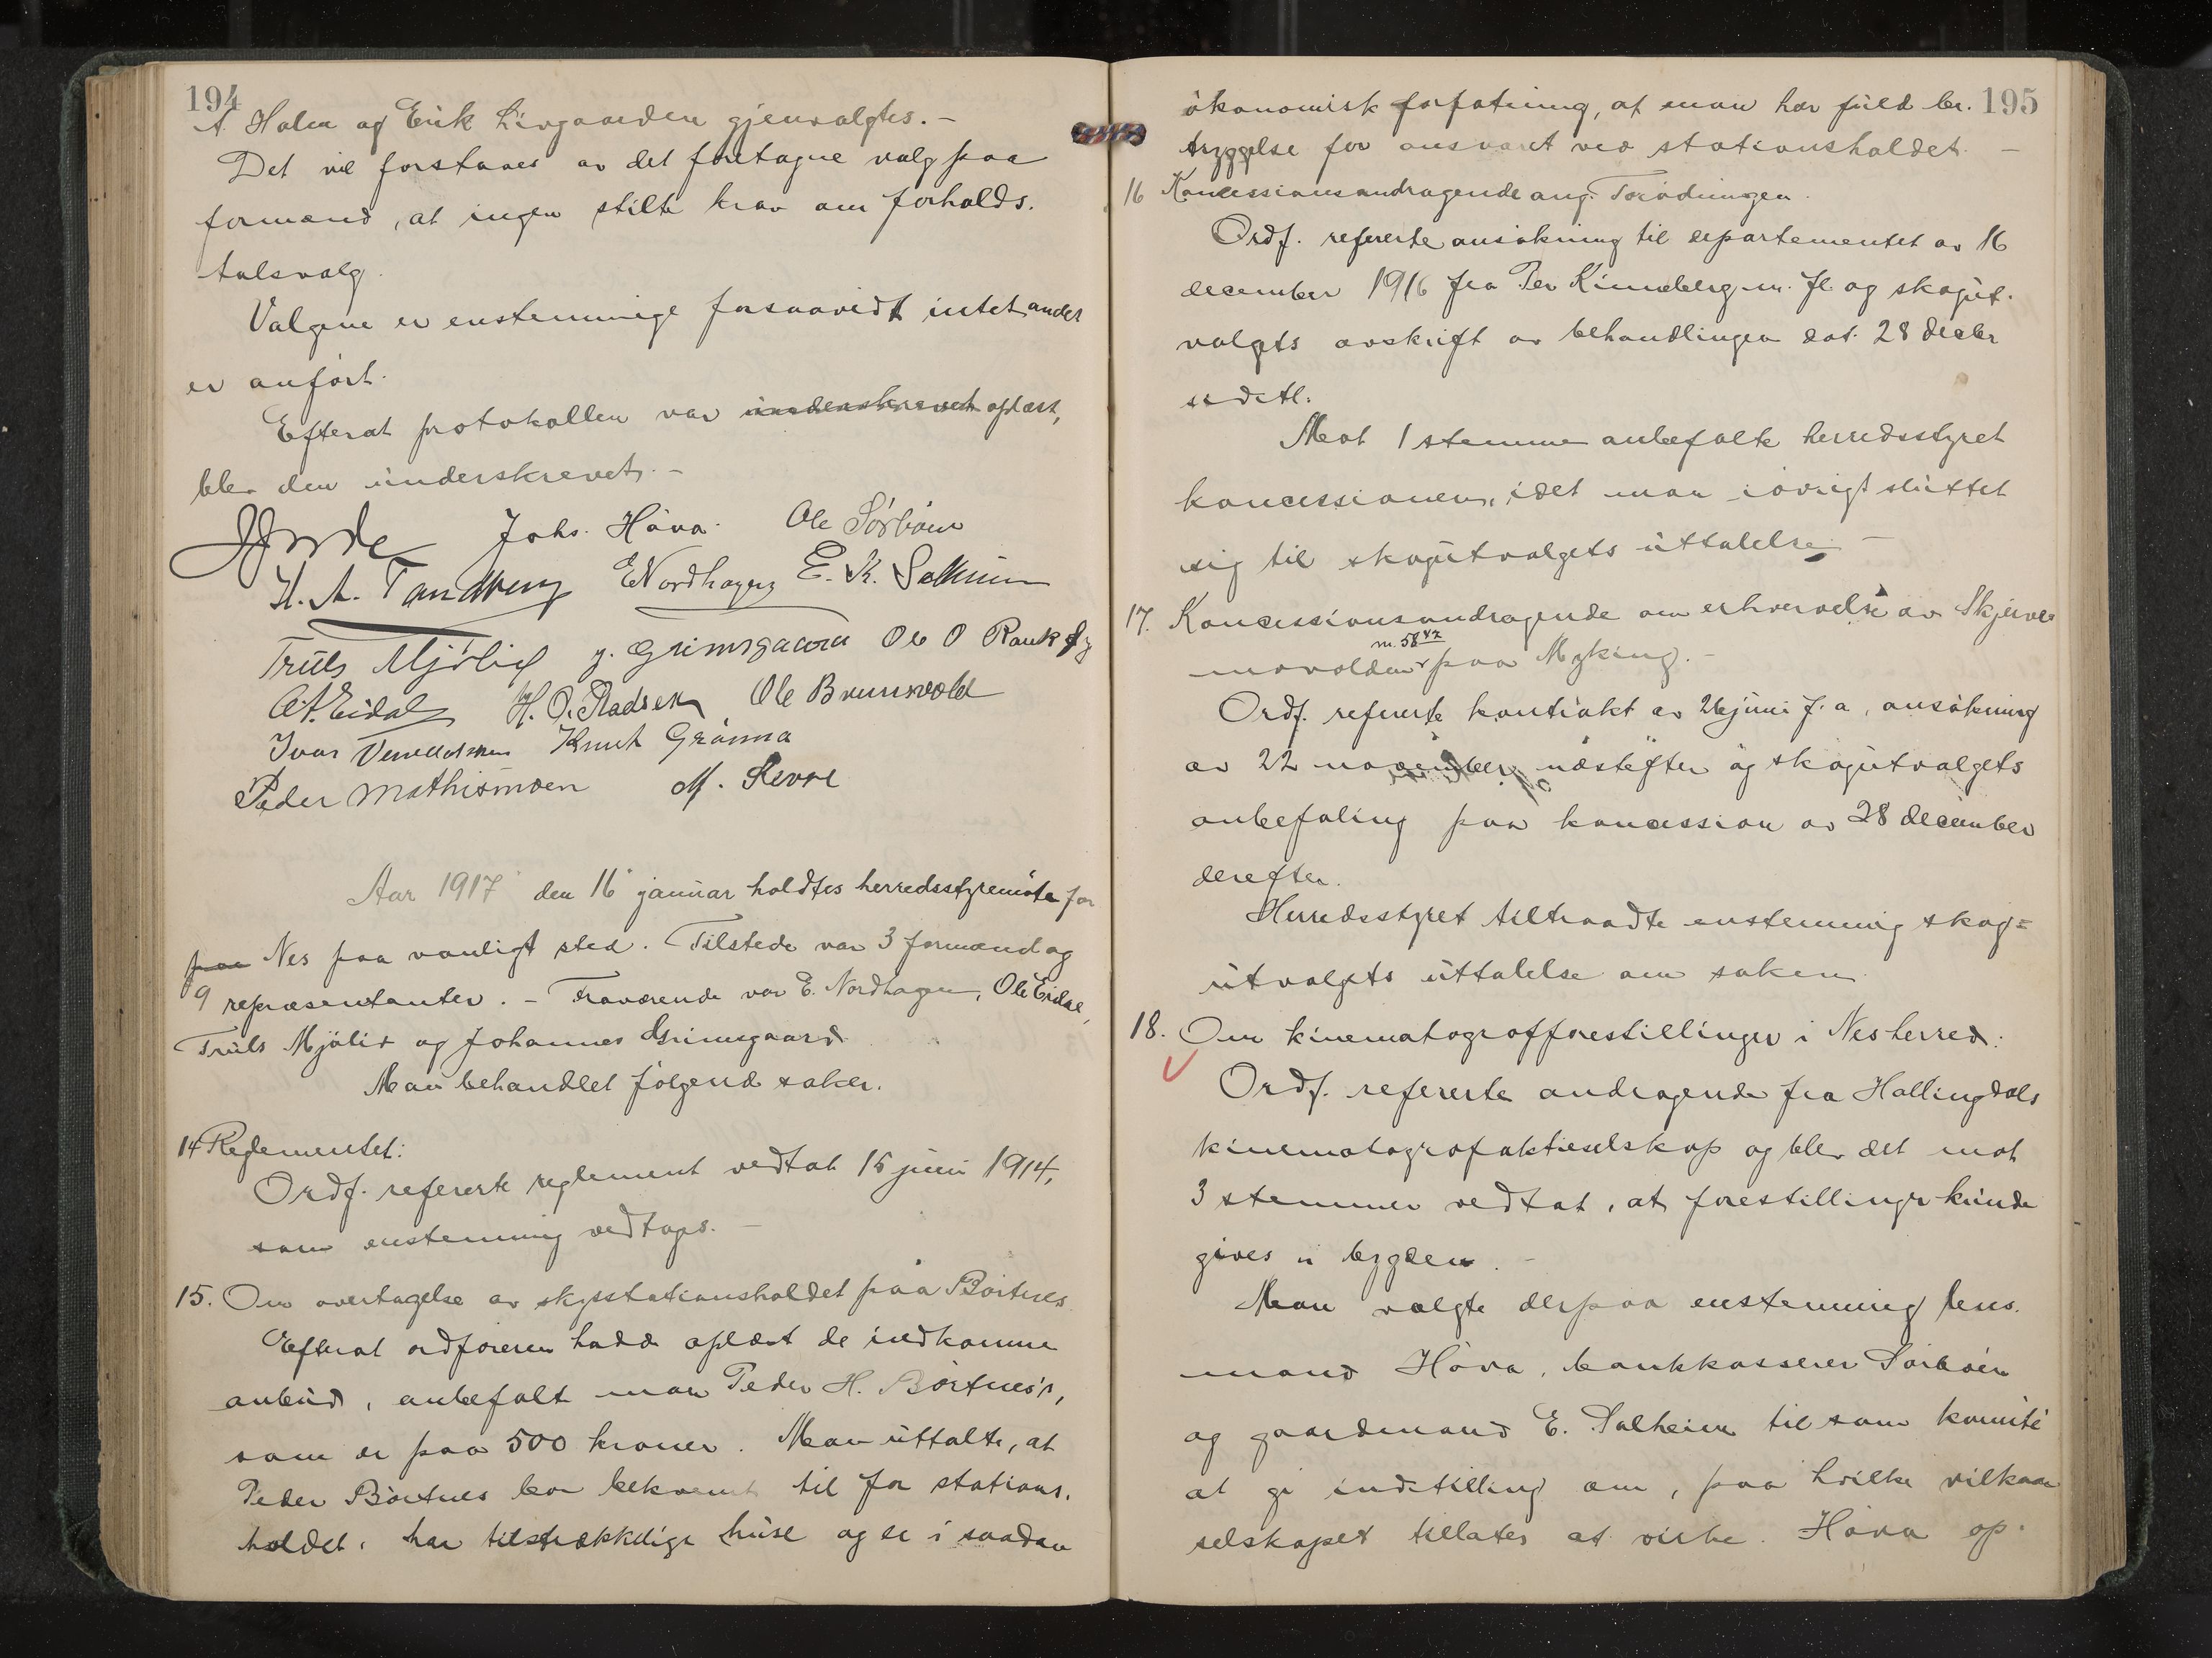 194
A. Halen og Erik Livgaarden gjenvalgtes. –
Det vil forstaaes av det foretagne valg paa
formænd, at ingen stilte krav om forholds-
talsvalg.
Valgene er enstemmige forsaavidt intet andet
er anført.
Efterat protokollen var underskrevet oplæst,
blev den underskrevet. –
Johs. Høva. Ole Sørbøen
H. A. Tandberg E Nordhagen E. K. Salheim
Truls Mjølid J. Grimsgaard Ole O
O. T. Eidal H. O. Radsen Ole Brunsvold
Ivar Knut Grønna
Peder Mathismoen M. Sevre
Aar 1917 den 16 januar holdtes herredsstyremøte for
paa Nes paa vanligt sted. Tilstede var 3 formænd og
9 repræsentanter. – Fraværende var E. Nordhagen, Ole Eidal,
Truls Mjølid og Johannes Grimsgaard.
Man behandlet følgende saker.
14 Reglementet:
Ordf. refererte reglement vedtat 15 juni 1914,
som enstemmig vedtoges. –
15. Om overtagelse av skysstationsholdet paa Børtnes
Efterat ordføreren hadde oplæst de indkomne
anbud, anbefalt man Peder H. Børtnes's,
som er paa 500 kroner. Man uttalte, at
Peder Børtnes bor bekvemt til for stations-
holdet, har tilstrækkelige huse og er i saadan
195
økonomisk forfatning, at man har fuld be-
tryggelse for ansvaret ved stationsholdet. –
16 Koncessionsandragende ang. Torødningen.
Ordf. refererte ansøkning til departementet av 16
december 1916 fra Per Kinneberg m. fl. og skogut-
valgts avskrift av behandlingen dat. 28 decbr
sidstl.
Mot 1 stemme anbefalte herredsstyret
koncessionen, idet man iøvrigt sluttet
sig til skogutvalgets uttalelse –
17. Koncessionsandragende om erhvervelse av Skjerve-
m. 58 42
movolden paa Myking. –
Ordf. refererte kontrakt av 26 juni f. a., ansøkning
av 22 november næstefter og skogutvalgets
anbefaling paa koncession av 28 december
derefter.
Herredsstyret tiltraadte enstemmig skog=
utvalgets uttalelse om saken.
18. Om kinematografforestillinger i Nes herred:
Ordf. refererte andragende fra Hallingdals
kinematografaktieselskap og blev det mot
3 stemmer vedtat, at forestillinger kunde
gives i bygden. –
Man valgte derpaa enstemmig lens-
mand Høva, bankkasserer Sørbøen
og gaardmand E. Salheim til som komité
at gi indstilling om, paa hvilke vilkaar
selskapet tillates at virke. Høva op-